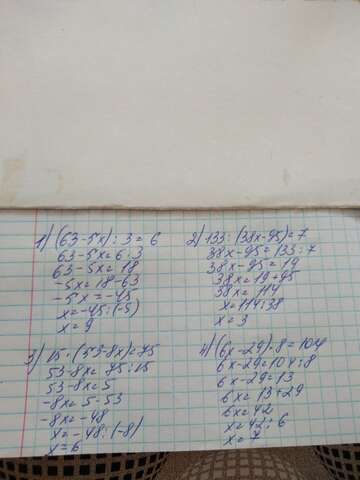 1) (63-5x) : 3 = 6
63-5x = 6·3
63-5x = 18
-5x = 18-63
-5x = -45
x = -45:(-5)
x = 9
2) 133 : (38x-95) = 7
38x-95 = 133:7
38x-95 = 19
38x = 19+95
38x = 114
x = 114:38
x = 3
3) 15·(53-8x) = 75
53-8x = 75:15
53-8x = 5
-8x = 5-53
-8x = -48
x = -48:(-8)
x = 6
4) (6x-29)·8 = 104
6x-29 = 104:8
6x-29 = 13
6x = 13+29
6x = 42
x = 42:6
x = 7